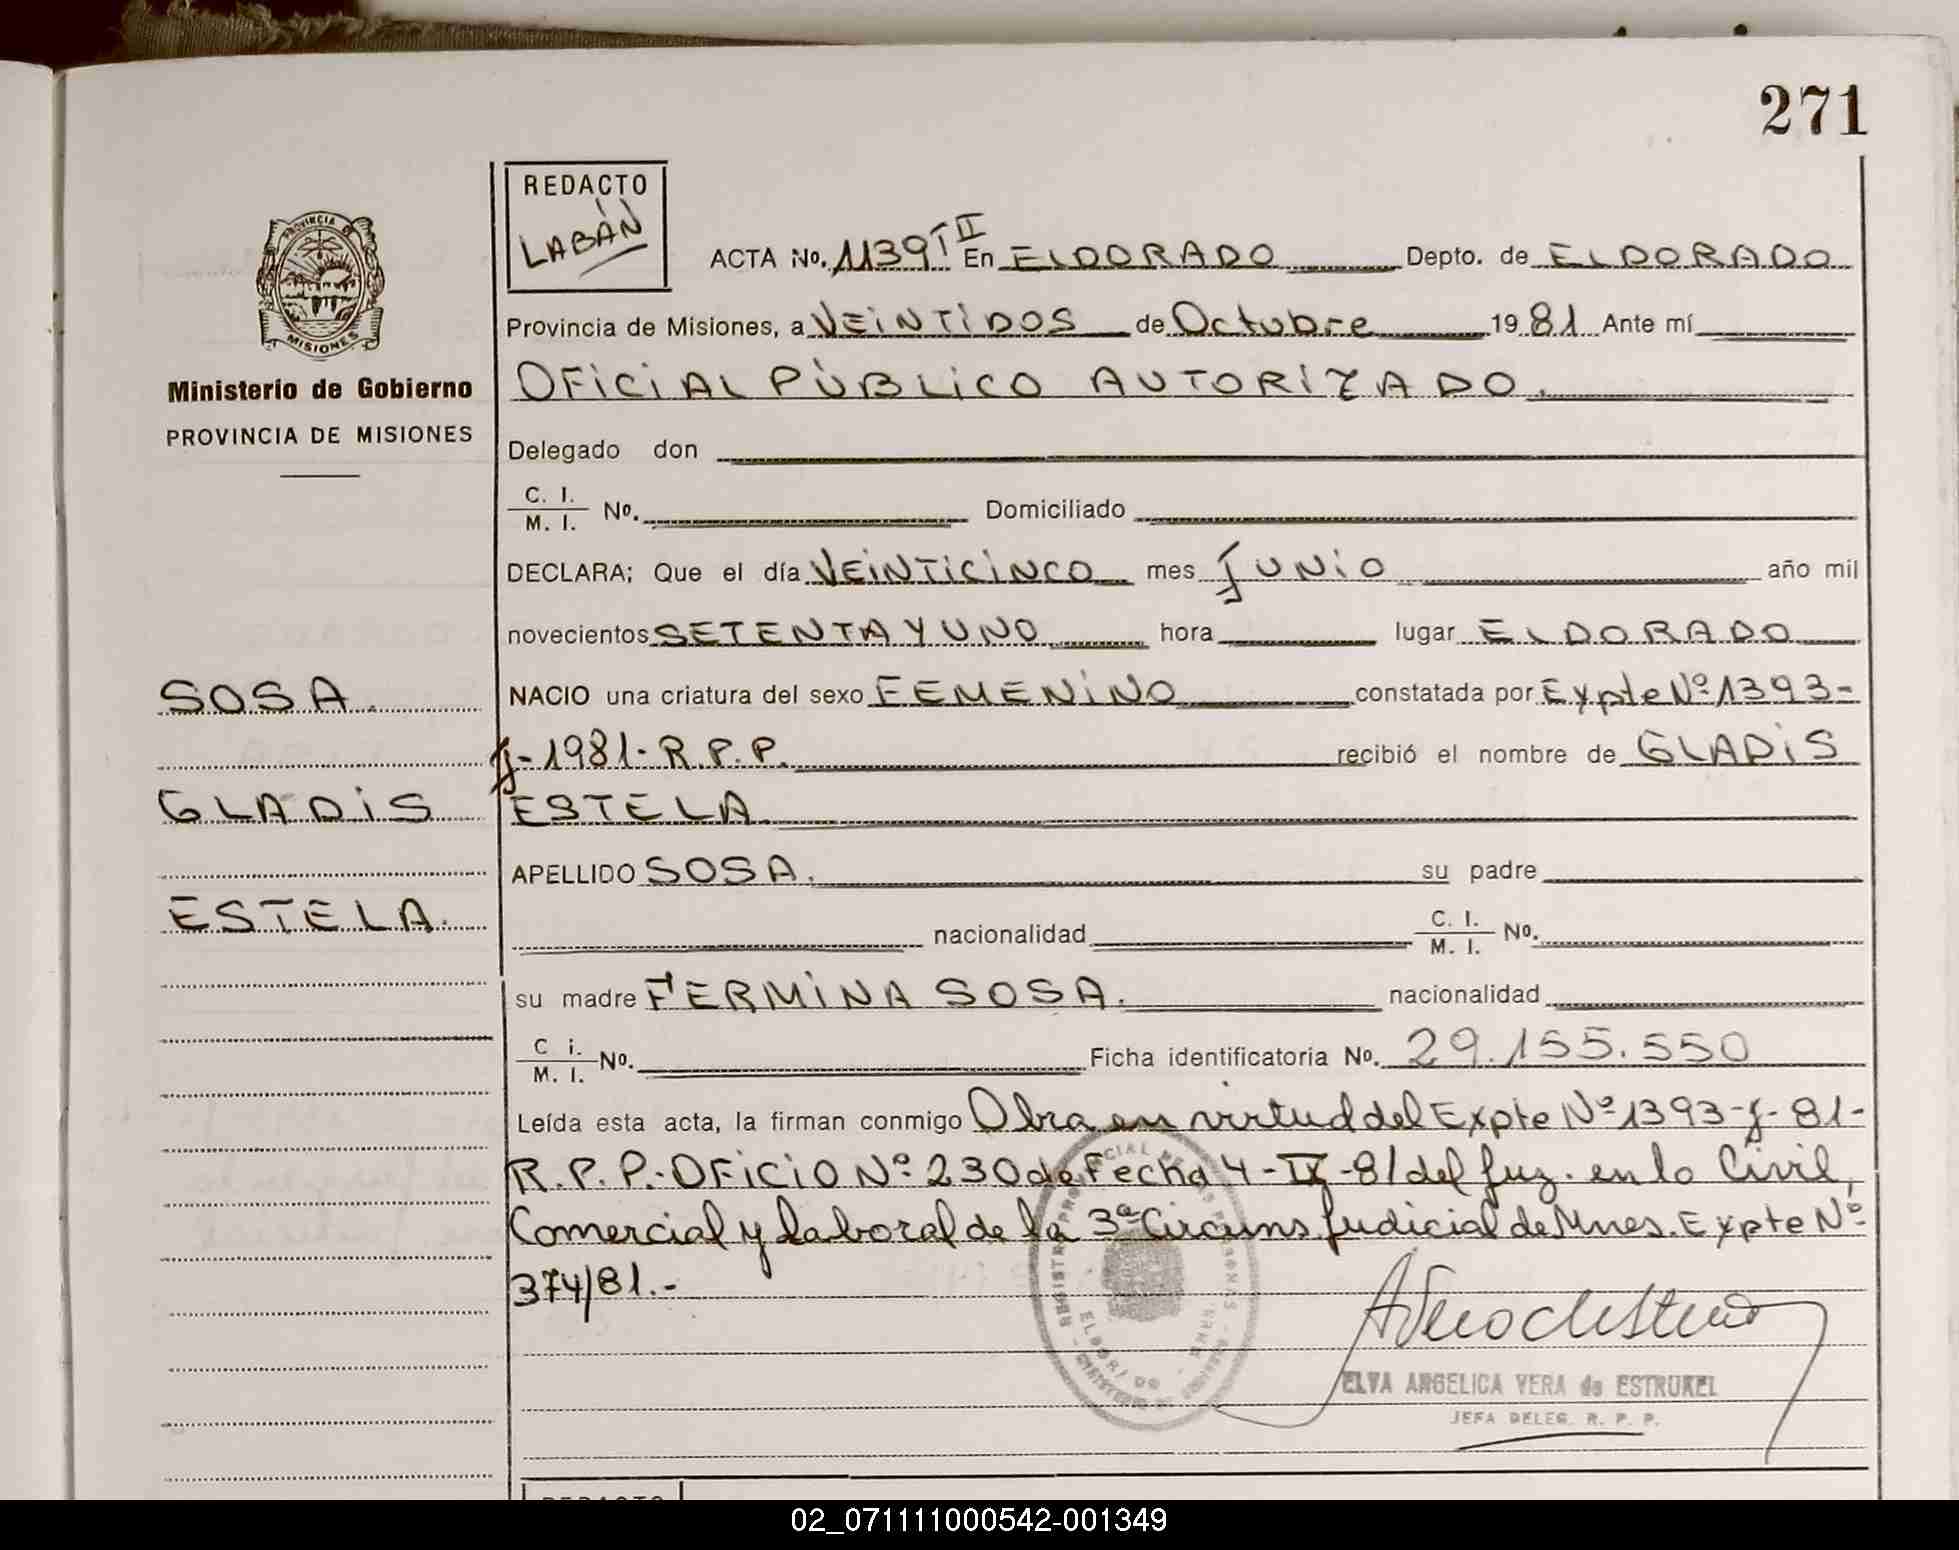 271
REDACTO
LABÁN
PROVINCIA DE
MISIONES
Ministerio de Gobierno
PROVINCIA DE MISIONES
SOSA.
GLADIS
ESTELA.
ACTA No. 1139 T II En ELDORADO Depto. de ELDORADO
Provincia de Misiones, a VEINTIDOS de Octubre 1981 Ante mí
OFICIAL PÚBLICO AUTORIZADO.
Delegado don
C. I.
M. I. No. Domiciliado
DECLARA; Que el día VEINTICINCO mes JUNIO año mil
novecientos SETENTA Y UNO hora lugar ELDORADO
NACIO una criatura del sexo FEMENINO constatada por Expte Nº 1393-
J-1981-R.P.P. recibió el nombre de GLADIS
ESTELA
APELLIDO SOSA. su padre
nacionalidad C. I.
M. I. No.
su madre FERMINA SOSA. nacionalidad
C i.
M. I. No. Ficha identificatoria No. 29.155.550
Leída esta acta, la firman conmigo Obra en virtud del Expte Nº 1393-J-81-
R.P.P.-OFICIO Nº 230 de Fecha 4-IX-81 del Juz. en lo Civil,
Comercial y Laboral de la 3ª Circuns Judicial de Mnes. Expte Nº
374/81.-
ELVA ANGELICA VERA de ESTRUKEL
JEFA DELEG. R. P. P.
REDACTO
02_071111000542-001349